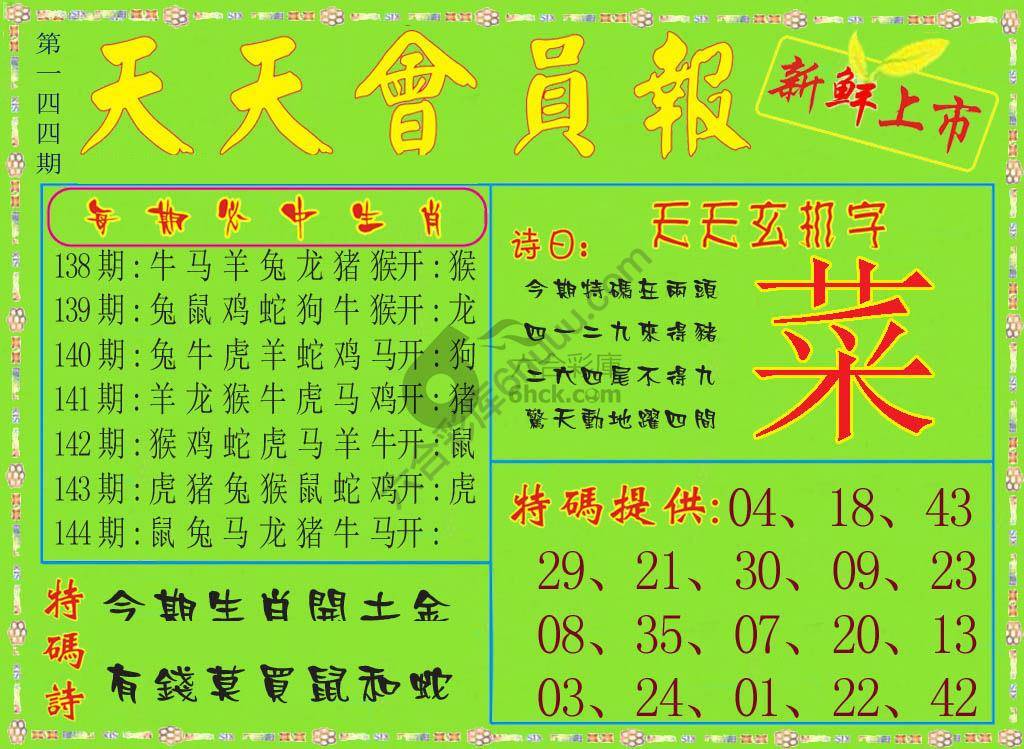 第一四四期
天天會員報
新鮮上市
每期必中生肖
138期:牛马羊兔龙猪猴开:猴
139期:兔鼠鸡蛇狗牛猴开:龙
140期:兔牛虎羊蛇鸡马开:狗
141期:羊龙猴牛虎马鸡开:猪
142期:猴鸡蛇虎马羊牛开:鼠
143期:虎猪兔猴鼠蛇鸡开:虎
144期:鼠兔马龙猪牛马开:
天天玄机字
诗曰:
今期特碼在兩頭
四一二九來得豬
二六四尾不得九
驚天動地躍四間
菜
特碼提供:04、18、43
29、21、30、09、23
08、35、07、20、13
03、24、01、22、42
特碼詩
今期生肖開土金
有錢莫買鼠和蛇
六合彩庫
6hck.com